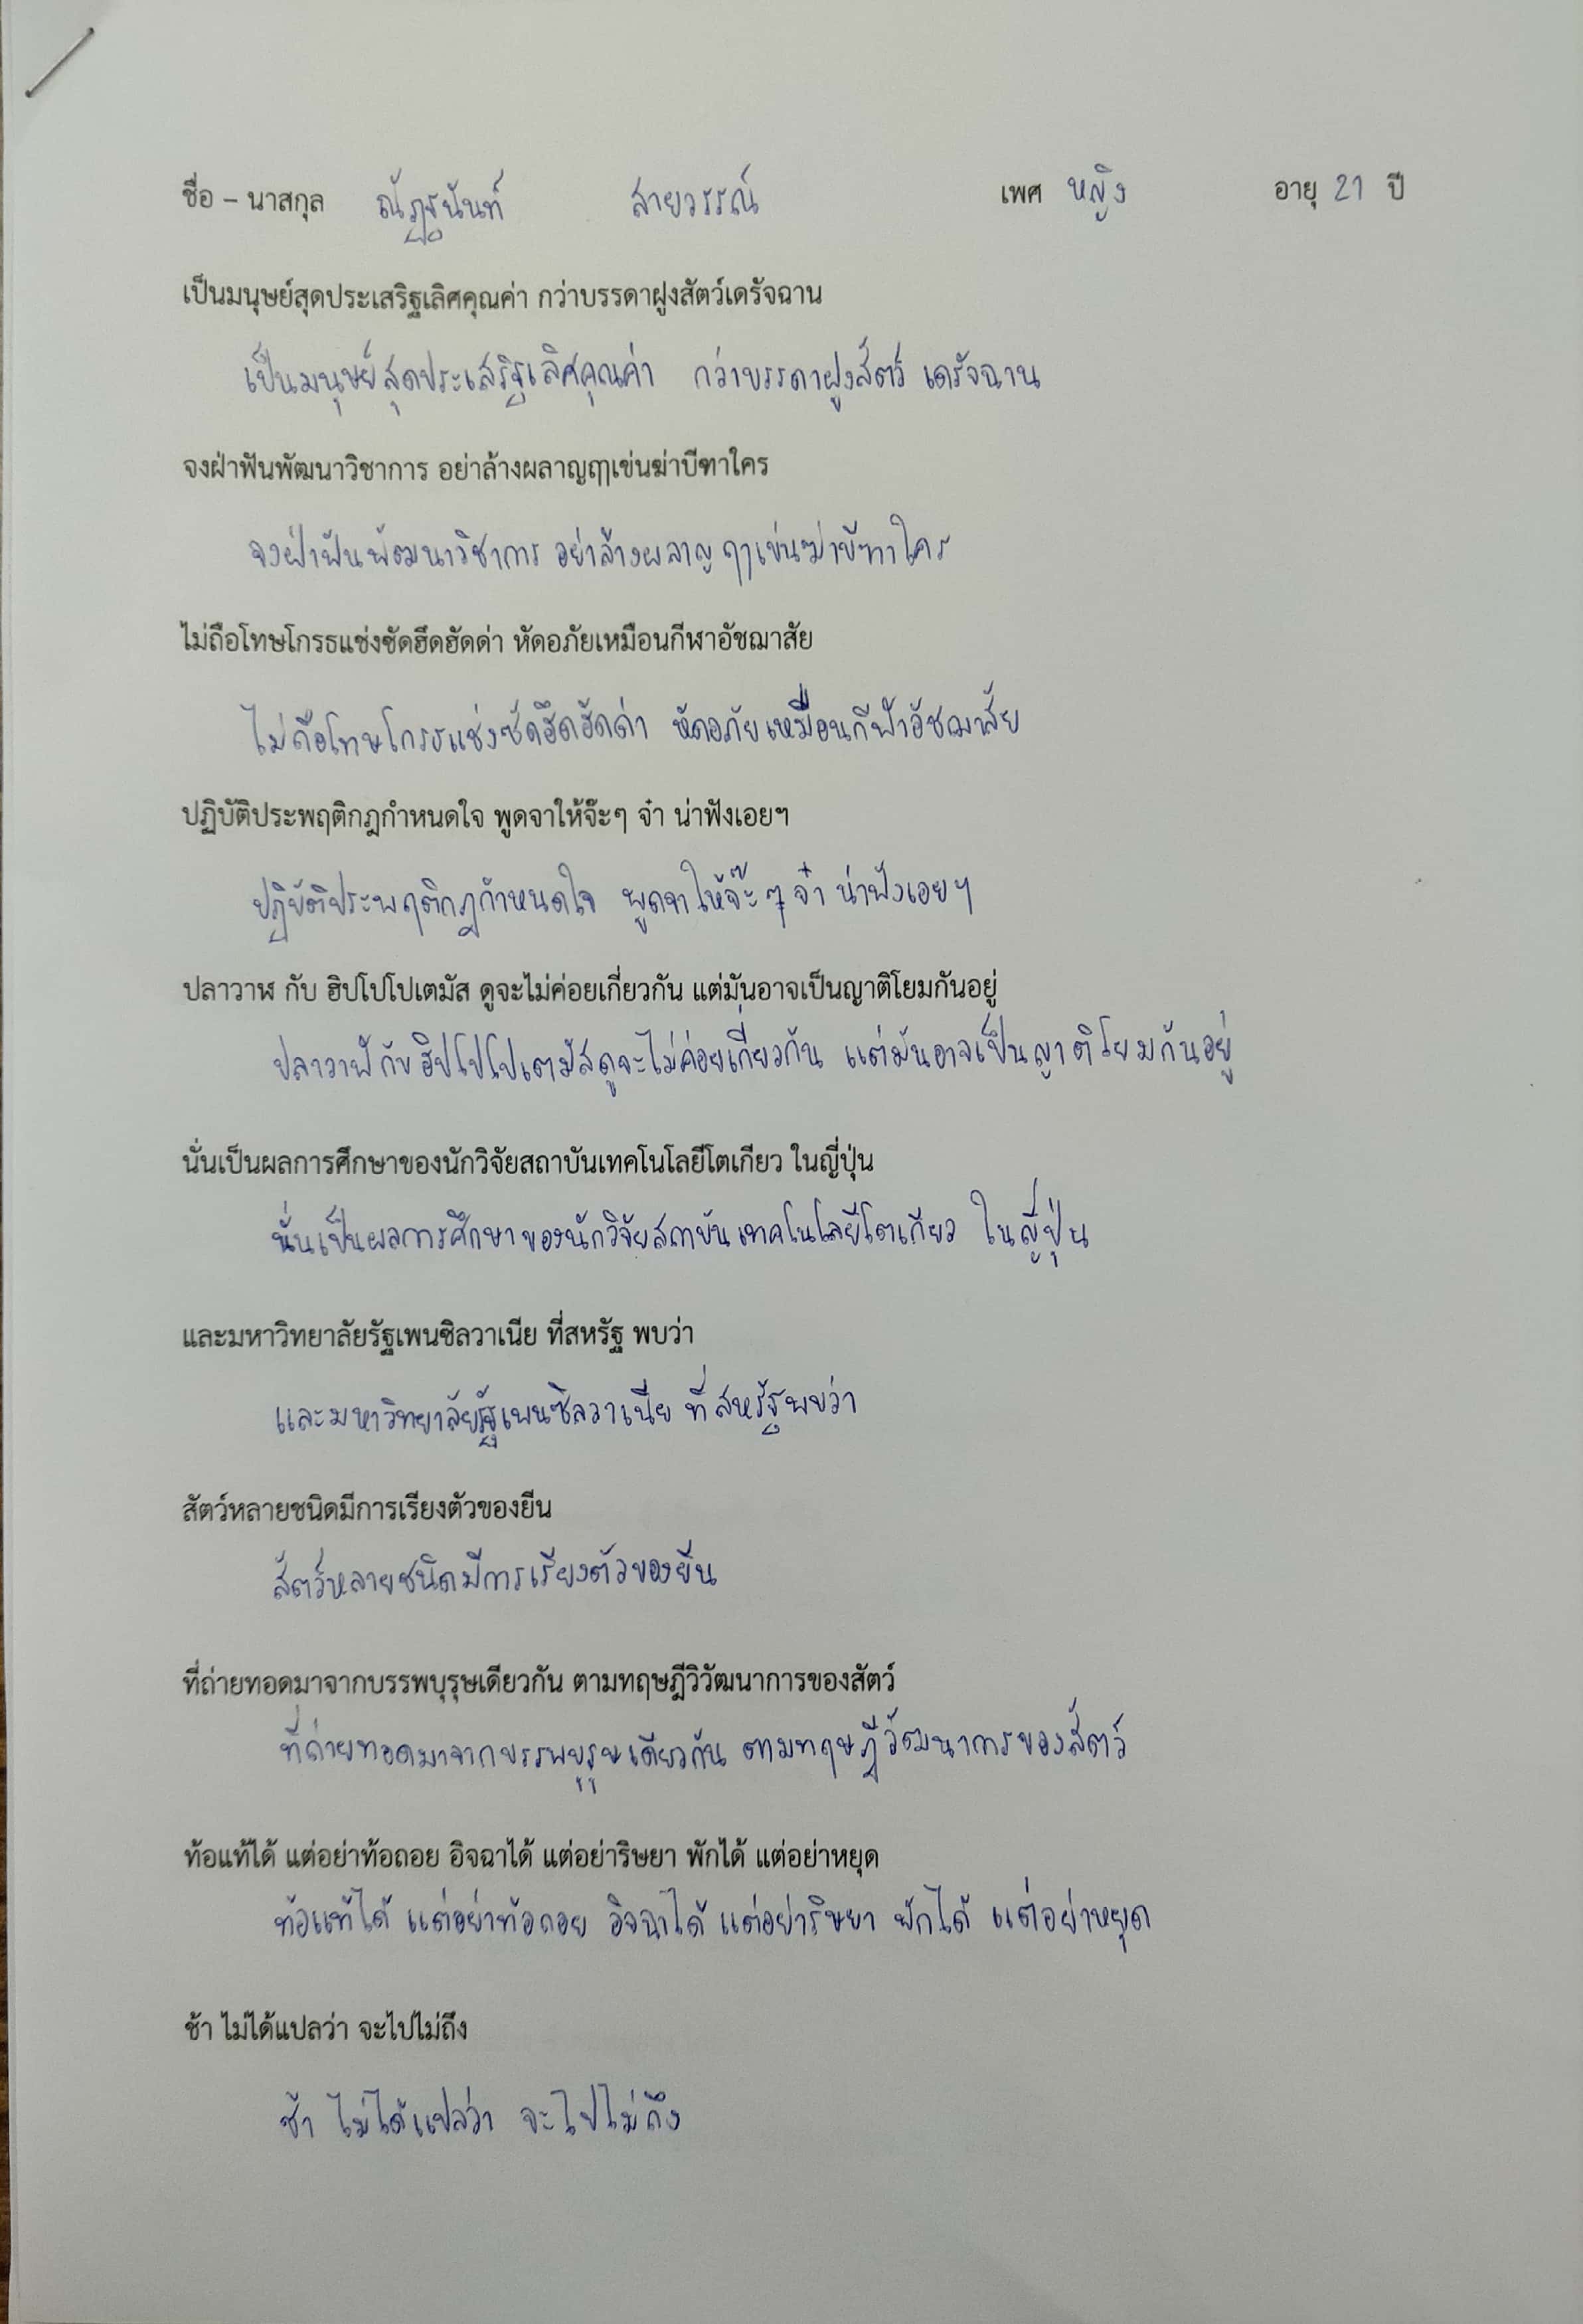 ชื่อ – นาสกุล ณัฏฐนันท์ สายวรรณ์ เพศ หญิง อายุ 21 ปี
เป็นมนุษย์สุดประเสริฐเลิศคุณค่า กว่าบรรดาฝูงสัตว์เดรัจฉาน
เป็นมนุษย์สุดประเสริฐเลิศคุณค่า กว่าบรรดาฝูงสัตว์ เดรัจฉาน
จงฝ่าฟันพัฒนาวิชาการ อย่าล้างผลาญฤๅเข่นฆ่าบีฑาใคร
จงฝ่าฟันพัฒนาวิชาการ อย่าล้างผลาญ ฤๅเข่นฆ่าบีฑาใคร
ไม่ถือโทษโกรธแช่งซัดฮึดฮัดด่า หัดอภัยเหมือนกีฬาอัชฌาสัย
ไม่ถือโทษโกรธแช่งซัดฮึดฮัดด่า หัดอภัยเหมือนกีฬาอัชฌาสัย
ปฏิบัติประพฤติกฎกำหนดใจ พูดจาให้จ๊ะๆ จ๋า น่าฟังเอยฯ
ปฏิบัติประพฤติกฎกำหนดใจ พูดจาให้จ๊ะๆ จ๋า น่าฟังเอยฯ
ปลาวาฬ กับ ฮิปโปโปเตมัส ดูจะไม่ค่อยเกี่ยวกัน แต่มันอาจเป็นญาติโยมกันอยู่
ปลาวาฬกับฮิปโปโปเตมัสดูจะไม่ค่อยเกี่ยวกัน แต่มันอาจเป็นญาติโยมกันอยู่
นั่นเป็นผลการศึกษาของนักวิจัยสถาบันเทคโนโลยีโตเกียว ในญี่ปุ่น
นั่นเป็นผลการศึกษาของนักวิจัยสถาบันเทคโนโลยีโตเกียว ในญี่ปุ่น
และมหาวิทยาลัยรัฐเพนซิลวาเนีย ที่สหรัฐ พบว่า
และมหาวิทยาลัยรัฐเพนซิลวาเนีย ที่สหรัฐพบว่า
สัตว์หลายชนิดมีการเรียงตัวของยีน
สัตว์หลายชนิดมีการเรียงตัวของยีน
ที่ถ่ายทอดมาจากบรรพบุรุษเดียวกัน ตามทฤษฎีวิวัฒนาการของสัตว์
ที่ถ่ายทอดมาจากบรรพบุรุษเดียวกัน ตามทฤษฎีวัฒนาการของสัตว์
ท้อแท้ได้ แต่อย่าท้อถอย อิจฉาได้ แต่อย่าริษยา พักได้ แต่อย่าหยุด
ท้อแท้ได้ แต่อย่าท้อถอย อิจฉาได้ แต่อย่าริษยา พักได้ แต่อย่าหยุด
ช้า ไม่ได้แปลว่า จะไปไม่ถึง
ช้า ไม่ได้แปลว่า จะไปไม่ถึง